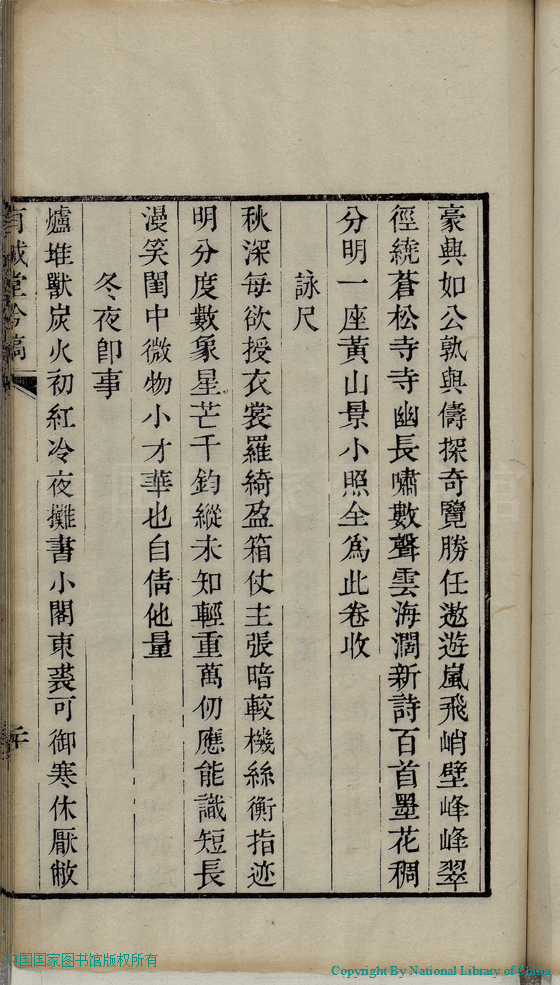 豪興如公孰與儔探奇覽勝任遨遊嵐飛峭壁峰峰翠
徑繞蒼松寺寺幽長嘯數聲雲海濶新詩百首墨花稠
分明一座黃山景小照全爲此卷收
詠尺
秋深每欲授衣裳羅綺盈箱仗主張暗較機絲衡指迹
明分度數象星芒千鈞縱未知輕重萬仞應能識短長
漫笑閨中微物小才華也自倩他量
冬夜卽事
爐堆獸炭火初紅冷夜攤書小閣東裘可御寒休厭敝
有誠堂吟稿
二十
中国国家图书馆版权所有
Copyright By National Library of China